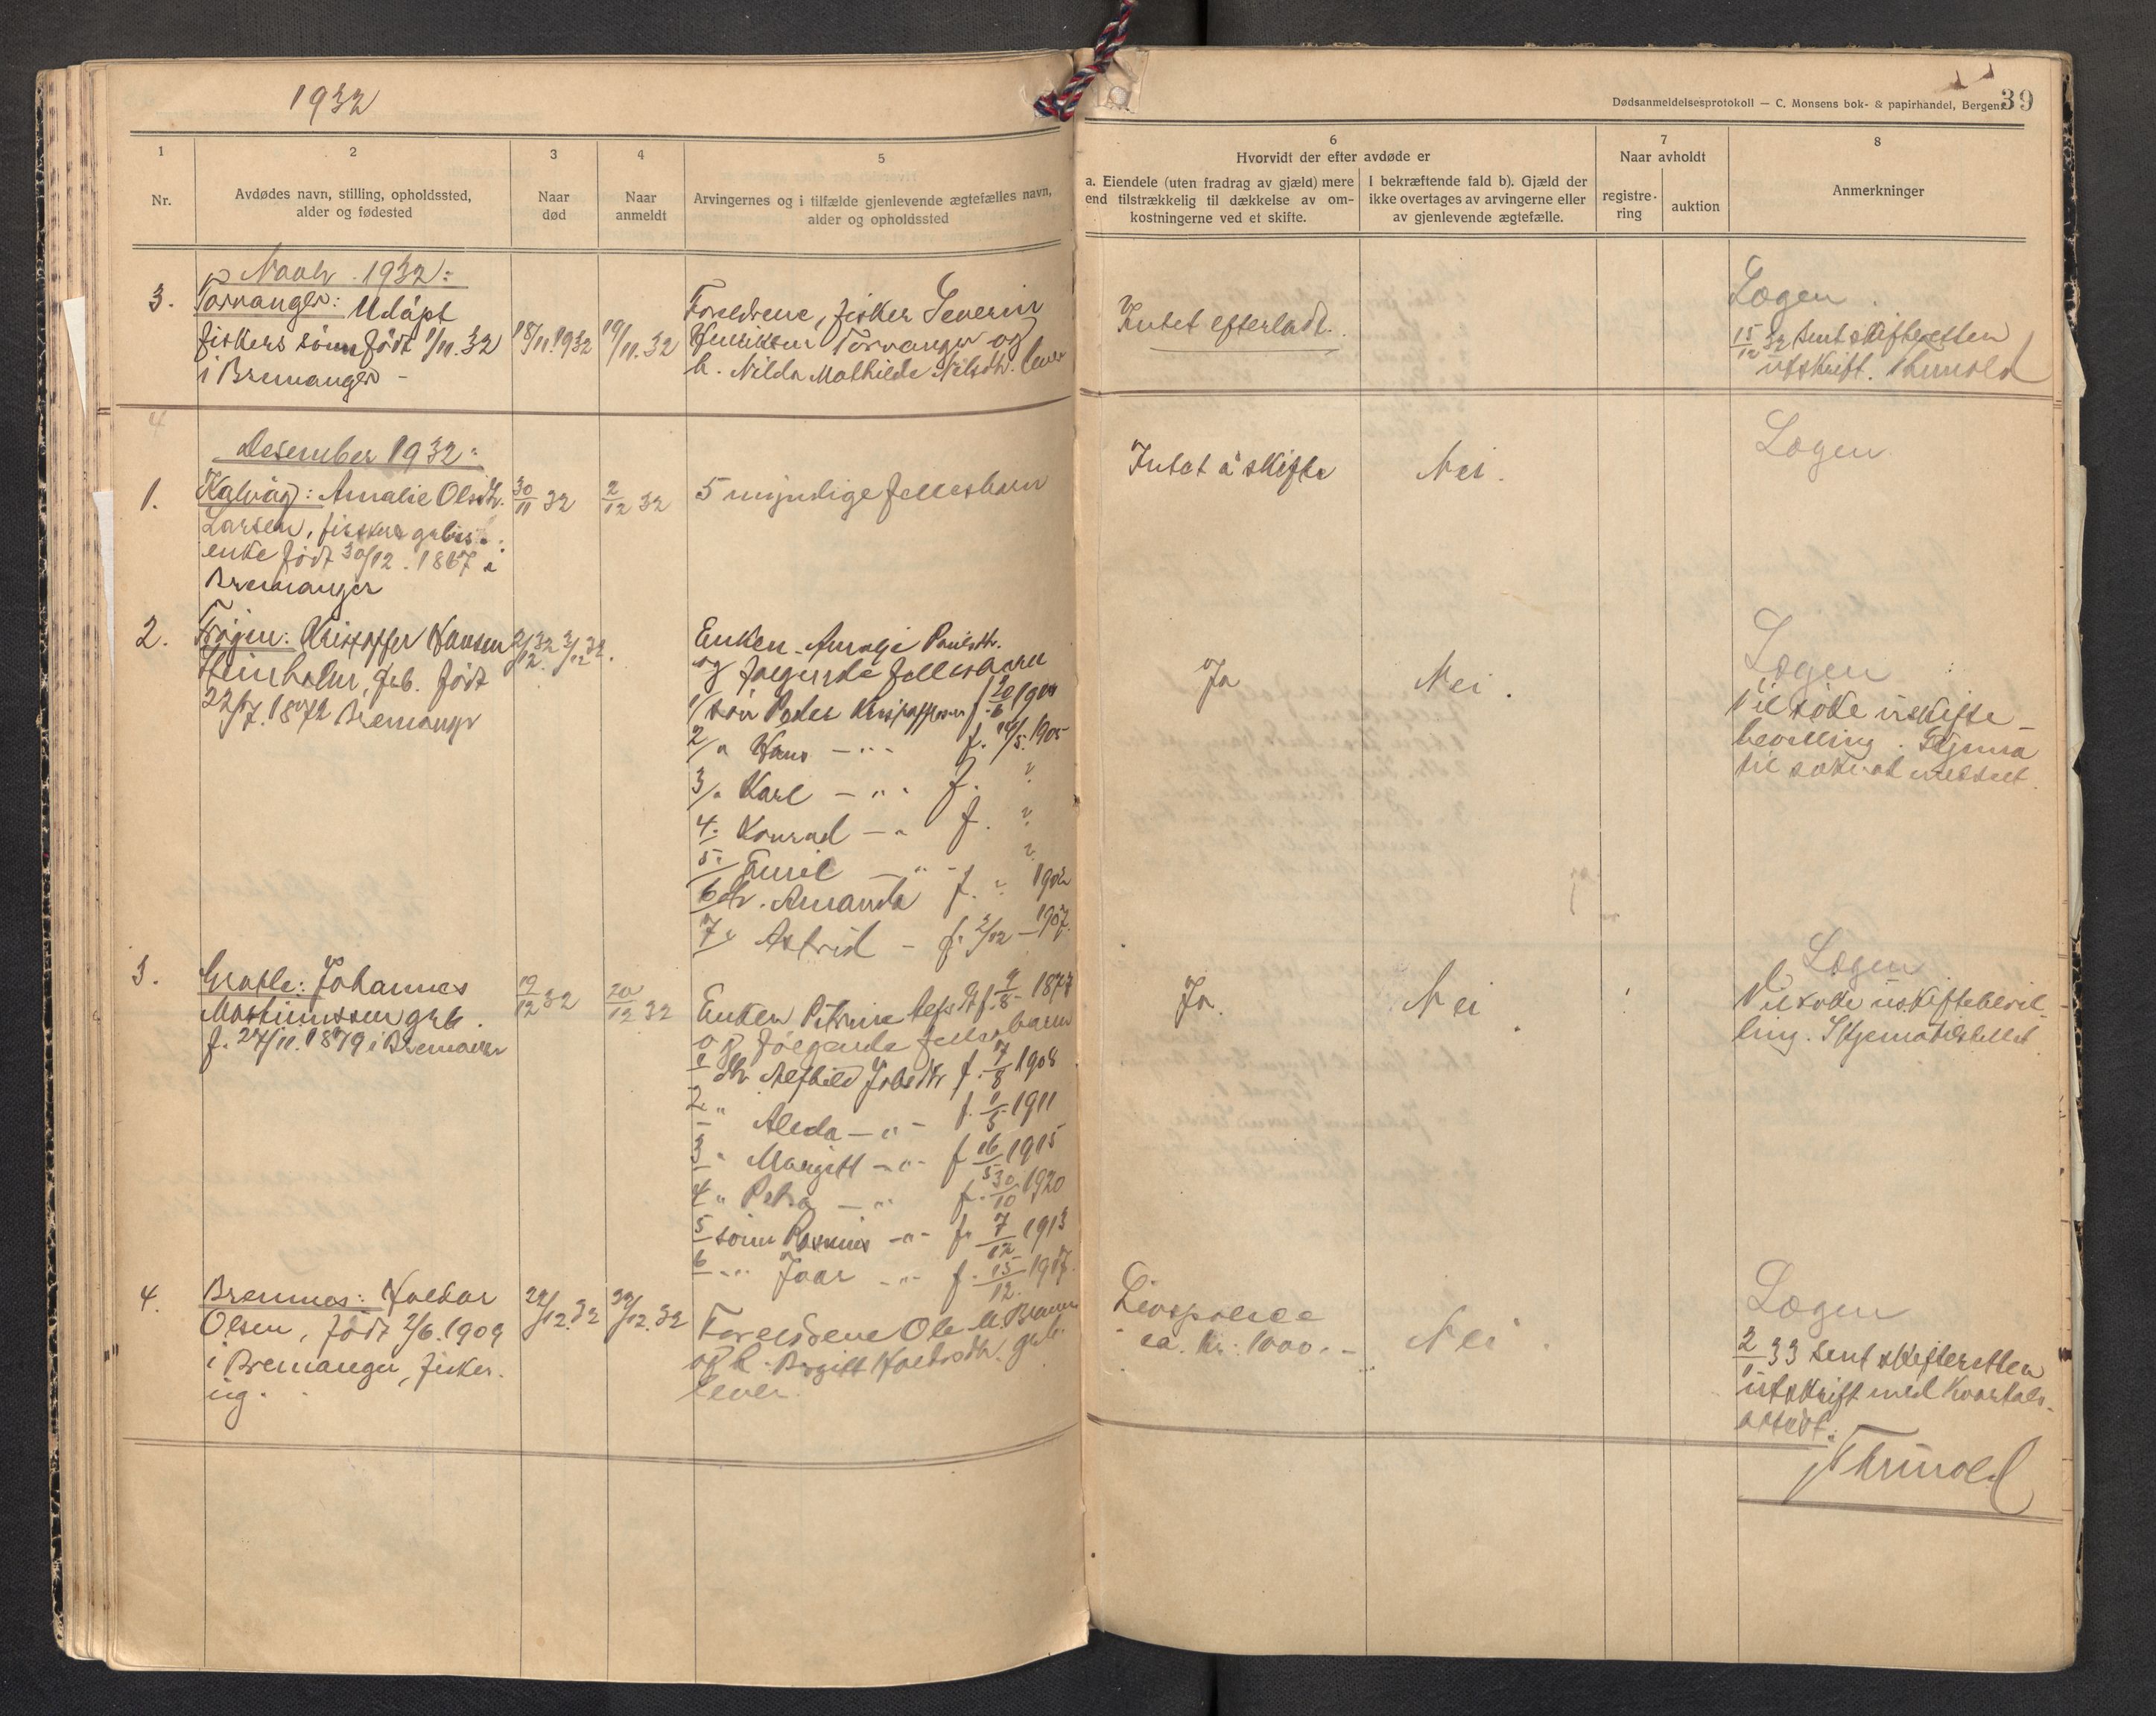 1932
Dødsanmeldelsesprotokoll — C. Monsens bok- & papirhandel, Bergen
39
1
2
3
4
5
6
7
8
Nr.
Avdødes navn, stilling, opholdssted,
alder og fødested
Naar
død
Naar
anmeldt
Arvingernes og i tilfælde gjenlevende ægtefælles navn,
alder og opholdssted
Hvorvidt der efter avdøde er
a. Eiendele (uten fradrag av gjæld) mere
end tilstrækkelig til dækkelse av om-
kostningerne ved et skifte.
I bekræftende fald b). Gjæld der
ikke overtages av arvingerne eller
av gjenlevende ægtefælle.
Naar avholdt
registre-
ring
auktion
Anmerkninger
1932:
3.
Torvanger: Udøpt
fiskers sönn født 1/11.32
i Bremanger -
18/11.1932
19/11.32
Foreldrene, fisker Severin
Henriksen Torvanger og
h. Nilda Mathilde Nilsdtr. lever
Intet efterladt.
Lægen
15/12 32 Sent skifteretten
utskrift.
4
Desember 1932:
1.
Kalvåg: Amalie Olsdtr.
Larsen, fiskers
enke født 30/12.1867 i
Bremanger
30/11 32
2/12 32
5 myndige fellesbarn
Intet å skifte
Nei.
Lægen
2.
Frøjen: Kristoffer Hansen
Steinholm, grb. født
22/7.1872 Bremanger
2/12.32
3/12.32.
Enken Paulsdtr.
og følgende fellesbarn
1/ sön Peder Kristoffersen f. 20/6 1901
2/ " Hans — " - f. /5.1905
3/ " Karl — " - f. ?
4: Konrad — " f. ?
5: Emil — " - ?
6 dtr. Amanda f. ? 190
7 " Astrid - f. 3/12 - 1907.
Ja
Nei.
Lægen
Vil söke uskifte-
bevilling. Skjema
til söknad utestedt.
3.
Grotle: Johannes
Martinussen grb.
f. 27/11.1879 i Bremanger
19/12 32
20/12 32
Enken Petrine f. 9/8 - 187
og følgende fellesbarn
1 dtr. Alfhild Johsdtr f. 7/8 1908
2 " Alida — " - f. 1/5 1911
3 " Margitt — " - f 16/5 1915
4 " Petra — " f. 30/10 1920
5 sönn Rasmus - " - f. 7/12 1913
6 - " Ivar - " - f. 15/12 1917.
Ja.
Nei
Lægen
Vil söke uskiftebevil-
ling. Skjema tilstillet
4.
Bremnes: Haldor
Olsen, født 2/6.1909
i Bremanger, fisker.
ug.
22/12.32
32
Foreldrene Ole M. Bremnes
og h. Birgitt Haldorsdtr. grb.
lever.
Livspolice
ca. kr: 1000.-
Nei
Lægen
2/1 33 Sent skifteretten
utskrift med kvartals-